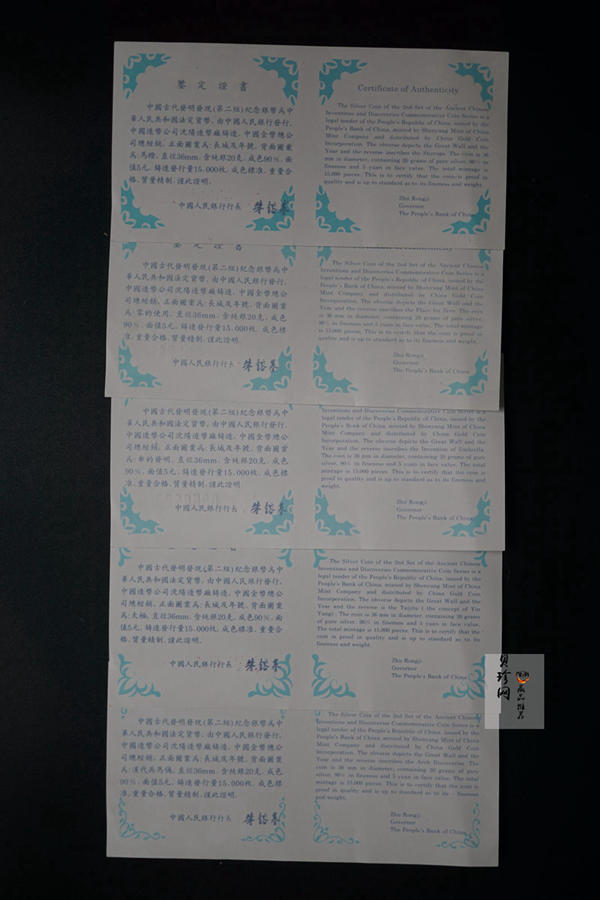 鉴定證書
中國古代發明發現(第二組)紀念銀幣爲中
華人民共和國法定貨幣,由中國人民銀行發行,
中國造幣公司沈陽造幣廠鑄造,中國金幣總公
司總經銷,正面圖案爲:長城及年號,背面圖案
爲:馬鐙,直徑36mm,含純銀20克,成色90%,面
值5元,鑄造發行量15.000枚,成色標准,重量合
格,質量精制,謹此證明。
中國人民銀行行長 朱鎔基
Certificate of Authenticity
The Silver Coin of the 2nd Set of the Ancient Chinese
Inventions and Discoveries Commemorative Coin Series is a
legal tender of the People's Republic of China, issued by the
People's Bank of China, minted by Shenyang Mint of China
Mint Company and distributed by China Gold Coin
Incorporation. The obverse depicts the Great Wall and the
Year and the reverse inscribes the Stirrups. The coin is 36
mm in diameter, containing 20 grams of pure silver, 90% in
fineness and 5 yuan in face value. The total mintage is
15,000 pieces. This is to certify that the coin is proof in
quality and is up to standard as to its fineness and weight.
Zhu Rongji
Governor
The People's Bank of China
鉴定證書
中國古代發明發現(第二組)紀念銀幣爲中
華人民共和國法定貨幣,由中國人民銀行發行,
中國造幣公司沈陽造幣廠鑄造,中國金幣總公
司總經銷,正面圖案爲:長城及年號,背面圖案
爲:零的使用,直徑36mm,含純銀20克,成色
90%,面值5元,鑄造發行量15.000枚,成色標
准,重量合格,質量精制,謹此證明。
中國人民銀行行長 朱鎔基
The Silver Coin of the 2nd Set of the Ancient Chinese
Inventions and Discoveries Commemorative Coin Series is a
legal tender of the People's Republic of China, issued by the
People's Bank of China, minted by Shenyang Mint of China
Mint Company and distributed by China Gold Coin
Incorporation. The obverse depicts the Great Wall and the
Year and the reverse inscribes the Place for Zero. The coin
is 36 mm in diameter, containing 20 grams of pure silver,
90% in fineness and 5 yuan in face value. The total mintage
is 15,000 pieces. This is to certify that the coin is proof in
quality and is up to standard as to its fineness and weight.
Zhu Rongji
Governor
The People's Bank of China
中國古代發明發現(第二組)紀念銀幣爲中
華人民共和國法定貨幣,由中國人民銀行發行,
中國造幣公司沈陽造幣廠鑄造,中國金幣總公
司總經銷,正面圖案爲:長城及年號,背面圖案
爲:傘的發明,直徑36mm,含純銀20克,成色
90%,面值5元,鑄造發行量15.000枚,成色標
准,重量合格,質量精制,謹此證明。
中國人民銀行行長 朱鎔基
Inventions and Discoveries Commemorative Coin Series is a
legal tender of the People's Republic of China, issued by the
People's Bank of China, minted by Shenyang Mint of China
Mint Company and distributed by China Gold Coin
Incorporation. The obverse depicts the Great Wall and the
Year and the reverse inscribes the Invention of Umbrella.
The coin is 36 mm in diameter, containing 20 grams of pure
silver, 90% in fineness and 5 yuan in face value. The total
mintage is 15,000 pieces. This is to certify that the coin is
proof in quality and is up to standard as to its fineness and
weight.
Zhu Rongji
Governor
The People's Bank of China
中國古代發明發現(第二組)紀念銀幣爲中
華人民共和國法定貨幣,由中國人民銀行發行,
中國造幣公司沈陽造幣廠鑄造,中國金幣總公
司總經銷,正面圖案爲:長城及年號,背面圖案
爲:太極,直徑36mm,含純銀20克,成色90%,面
值5元,鑄造發行量15.000枚,成色標准,重量合
格,質量精制,謹此證明。
中國人民銀行行長 朱鎔基
The Silver Coin of the 2nd Set of the Ancient Chinese
Inventions and Discoveries Commemorative Coin Series is a
legal tender of the People's Republic of China, issued by the
People's Bank of China, minted by Shenyang Mint of China
Mint Company and distributed by China Gold Coin
Incorporation. The obverse depicts the Great Wall and the
Year and the reverse is the Taijitu ( the concept of Yin
Yang) . The coin is 36 mm in diameter, containing 20 grams
of pure silver, 90% in fineness and 5 yuan in face value.
The total mintage is 15,000 pieces. This is to certify that the
coin is proof in quality and is up to standard as to its
fineness and weight.
Zhu Rongji
Governor
The People's Bank of China
中國古代發明發現(第二組)紀念銀幣爲中
華人民共和國法定貨幣,由中國人民銀行發行,
中國造幣公司沈陽造幣廠鑄造,中國金幣總公
司總經銷,正面圖案爲:長城及年號,背面圖案
爲:漢代兵馬俑,直徑36mm,含純銀20克,成色
90%,面值5元,鑄造發行量15.000枚,成色標
准,重量合格,質量精制,謹此證明。
中國人民銀行行長 朱鎔基
The Silver Coin of the 2nd Set of the Ancient Chinese
Inventions and Discoveries Commemorative Coin Series is a
legal tender of the People's Republic of China, issued by the
People's Bank of China, minted by Shenyang Mint of China
Mint Company and distributed by China Gold Coin
Incorporation. The obverse depicts the Great Wall and the
Year and the reverse inscribes the Arch Discovering. The
coin is 36 mm in diameter, containing 20 grams of pure
silver, 90% in fineness and 5 yuan in face value. The total
mintage is 15,000 pieces. This is to certify that the coin is
proof in quality and is up to standard as to its fineness
and weight.
Zhu Rongji
Governor
The People's Bank of China
藏品推荐